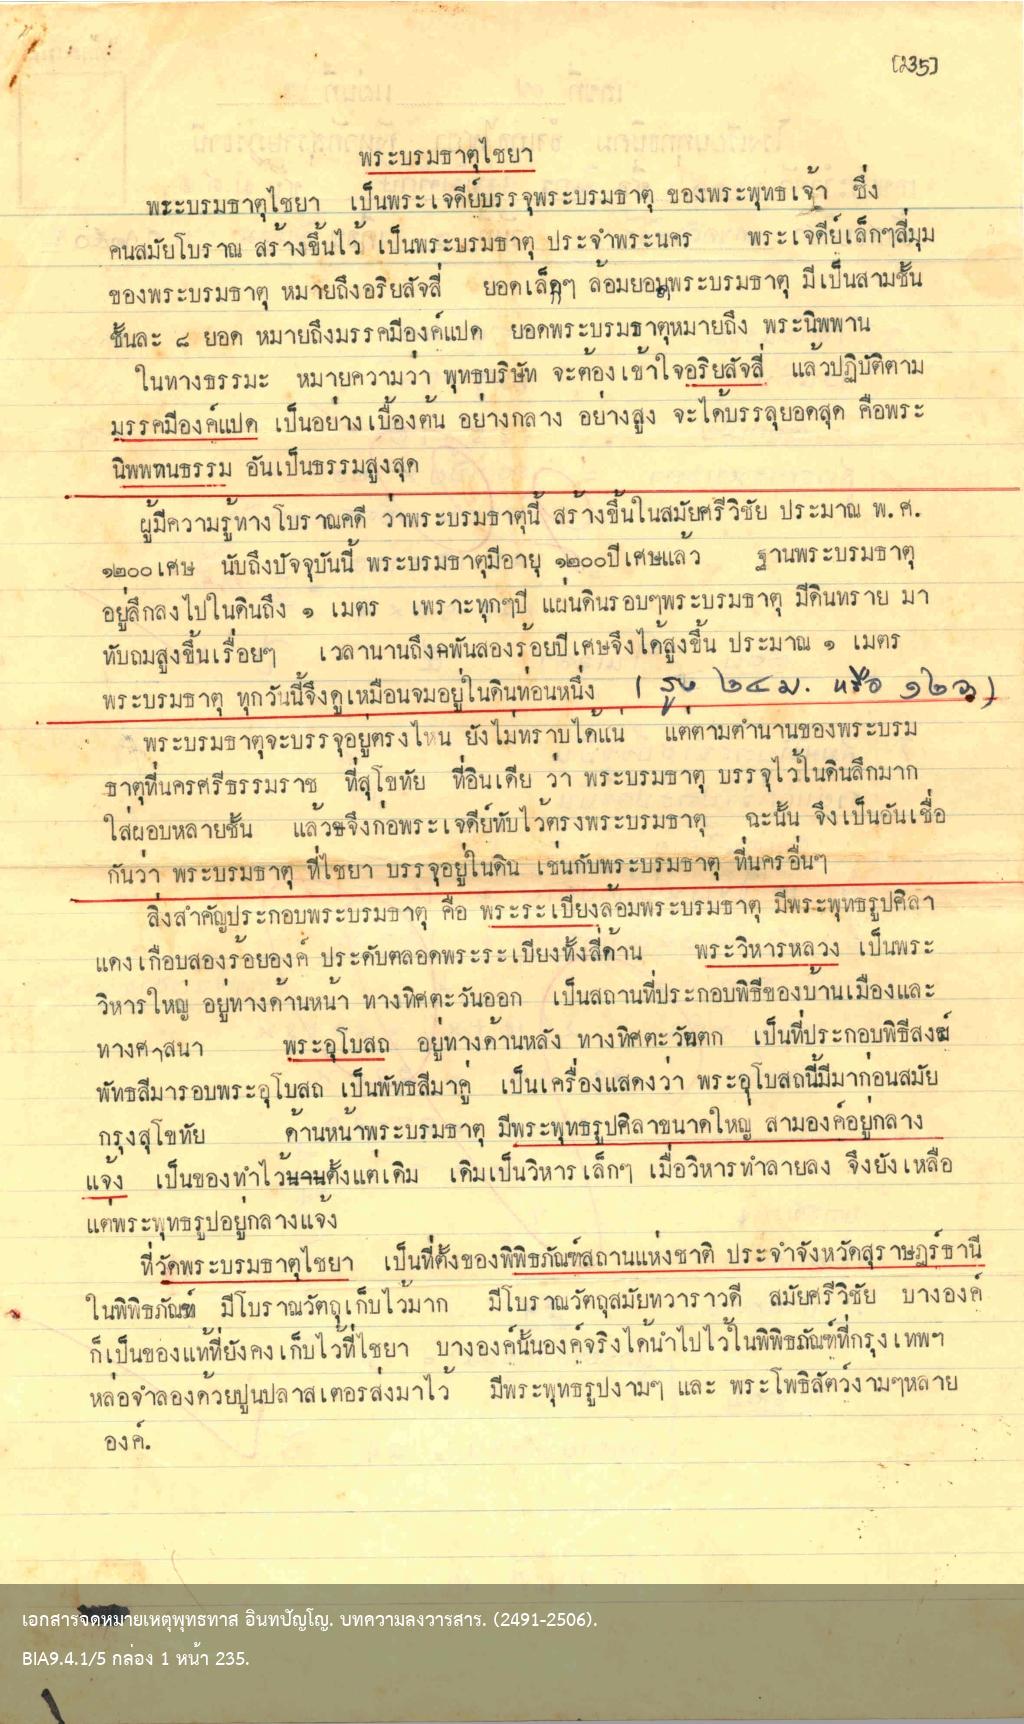 [235]
พระบรมธาตุไชยา
พระบรมธาตุไชยา เป็นพระเจดีย์บรรจุพระบรมธาตุ ของพระพุทธเจ้า ซึ่ง
คนสมัยโบราณ สร้างขึ้นไว้ เป็นพระบรมธาตุ ประจำพระนคร พระเจดีย์เล็กๆสี่มุม
ของพระบรมธาตุ หมายถึงอริยสัจสี่ ยอดเล็กๆ ล้อมยอดพระบรมธาตุ มีเป็นสามชั้น
ชั้นละ ๘ ยอด หมายถึงมรรคมีองค์แปด ยอดพระบรมธาตุหมายถึง พระนิพพาน
ในทางธรรมะ หมายความว่า พุทธบริษัท จะต้องเข้าใจอริยสัจสี่ แล้วปฏิบัติตาม
มรรคมีองค์แปด เป็นอย่างเบื้องต้น อย่างกลาง อย่างสูง จะได้บรรลุยอดสุด คือพระ
นิพพานธรรม อันเป็นธรรมสูงสุด
ผู้มีความรู้ทางโบราณคดี ว่าพระบรมธาตุนี้ สร้างขึ้นในสมัยศรีวิชัย ประมาณ พ.ศ.
๑๒๐๐เศษ นับถึงปัจจุบันนี้ พระบรมธาตุมีอายุ ๑๒๐๐ปีเศษแล้ว ฐานพระบรมธาตุ
อยู่ลึกลงไปในดินถึง ๑ เมตร เพราะทุกๆปี แผ่นดินรอบๆพระบรมธาตุ มีดินทราย มา
ทับถมสูงขึ้นเรื่อยๆ เวลานานถึงพันสองร้อยปีเศษจึงได้สูงขึ้น ประมาณ ๑ เมตร
พระบรมธาตุ ทุกวันนี้จึงดูเหมือนจมอยู่ในดินท่อนหนึ่ง ( สูง ๒๔ ม. หรือ ๑๒ ว)
พระบรมธาตุจะบรรจุอยู่ตรงไหน ยังไม่ทราบได้แน่ แต่ตามตำนานของพระบรม
ธาตุที่นครศรีธรรมราช ที่สุโขทัย ที่อินเดีย ว่า พระบรมธาตุ บรรจุไว้ในดินลึกมาก
ใส่ผอบหลายชั้น แล้วจึงก่อพระเจดีย์ทับไว้ตรงพระบรมธาตุ ฉะนั้น จึงเป็นอันเชื่อ
กันว่า พระบรมธาตุ ที่ไชยา บรรจุอยู่ในดิน เช่นกับพระบรมธาตุ ที่นครอื่นๆ
สิ่งสำคัญประกอบพระบรมธาตุ คือ พระระเบียงล้อมพระบรมธาตุ มีพระพุทธรูปศิลา
แดงเกือบสองร้อยองค์ ประดับตลอดพระระเบียงทั้งสี่ด้าน พระวิหารหลวง เป็นพระ
วิหารใหญ่ อยู่ทางด้านหน้า ทางทิศตะวันออก เป็นสถานที่ประกอบพิธีของบ้านเมืองและ
ทางศาสนา พระอุโบสถ อยู่ทางด้านหลัง ทางทิศตะวันตก เป็นที่ประกอบพิธีสงฆ์
พัทธสีมารอบพระอุโบสถ เป็นพัทธสีมาคู่ เป็นเครื่องแสดงว่า พระอุโบสถนี้มีมาก่อนสมัย
กรุงสุโขทัย ด้านหน้าพระบรมธาตุ มีพระพุทธรูปศิลาขนาดใหญ่ สามองค์อยู่กลาง
แจ้ง เป็นของทำไว้นานตั้งแต่เดิม เดิมเป็นวิหารเล็กๆ เมื่อวิหารทำลายลง จึงยังเหลือ
แต่พระพุทธรูปอยู่กลางแจ้ง
ที่วัดพระบรมธาตุไชยา เป็นที่ตั้งของพิพิธภัณฑ์สถานแห่งชาติ ประจำจังหวัดสุราษฎร์ธานี
ในพิพิธภัณฑ์ มีโบราณวัตถุเก็บไว้มาก มีโบราณวัตถุสมัยทวาราวดี สมัยศรีวิชัย บางองค์
ก็เป็นของแท้ที่ยังคงเก็บไว้ที่ไชยา บางองค์นั้นองค์จริงได้นำไปไว้ในพิพิธภัณฑ์ที่กรุงเทพฯ
หล่อจำลองด้วยปูนปลาสเตอร์ส่งมาไว้ มีพระพุทธรูปงามๆ และ พระโพธิสัตว์งามๆหลาย
องค์.
เอกสารจดหมายเหตุพุทธทาส อินทปัญโญ. บทความลงวารสาร. (2491-2506).
BIA9.4.1/5 กล่อง 1 หน้า 235.